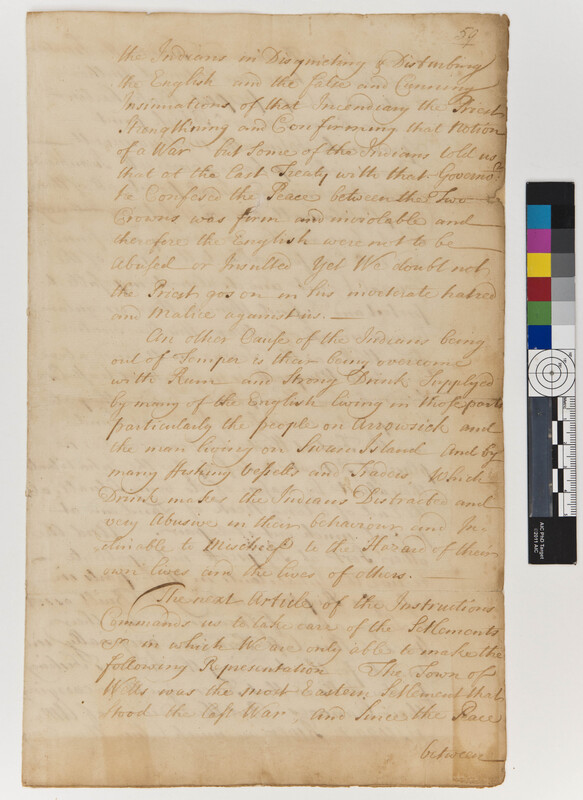 59
the Indians in Disquieting & Disturbing
the English and the false and Cunning
Insinuations of that Incendiary the Priest
Strengthining and Confirming that Notion
of a War but Some of the Indians told us
that at the Last Treaty with that Governor
he Confesed the Peace between the Two
Crowns was firm and inviolable and
therefore the English were not to be
Abused or Insulted Yet We doubt not
the Priest goes on in his inveterate hatred
and Malice against us.
An other Cause of the Indians being
out of Temper is their being overcome
with Rum and Strong Drink Supplyed
by many of the English living in those parts
particularly the people on Arrowsick and
the man living on Swan Island And by
many fishing vessells and Traders Which
Drink makes the Indians Distracted and
very Abusive in their behaviour and In-
clinable to Mischief to the Hazard of their
own lives and the lives of others.
The next Article of the Instructions
Commands us to take care of the Setlements
&c in which We are only able to make the
following Representation The Town of
Wells was the most Eastern Setlement that
stood the last War and Since the Peace
between
AIC PhD Target
©2011 AIC